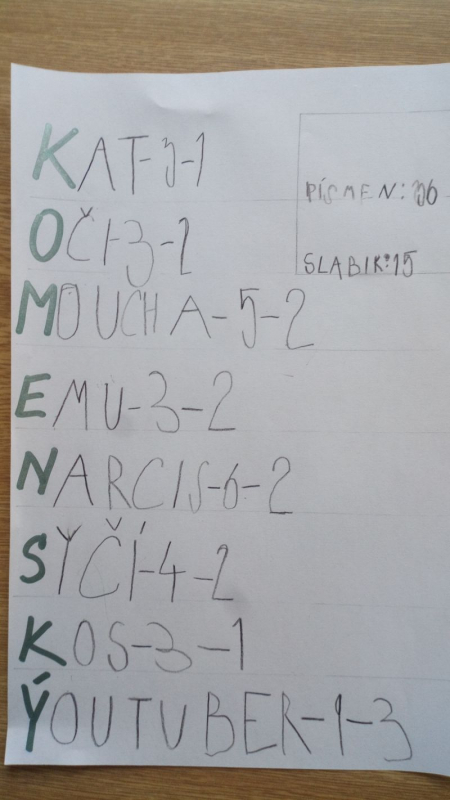 KAT-3-1
OČI-3-2
MOUCHA-5-2
EMU-3-2
NARCIS-6-2
SYČÍ-4-2
KOS-3-1
ÝOUTUBER-1-3
PÍSMEN:
SLABIK:15